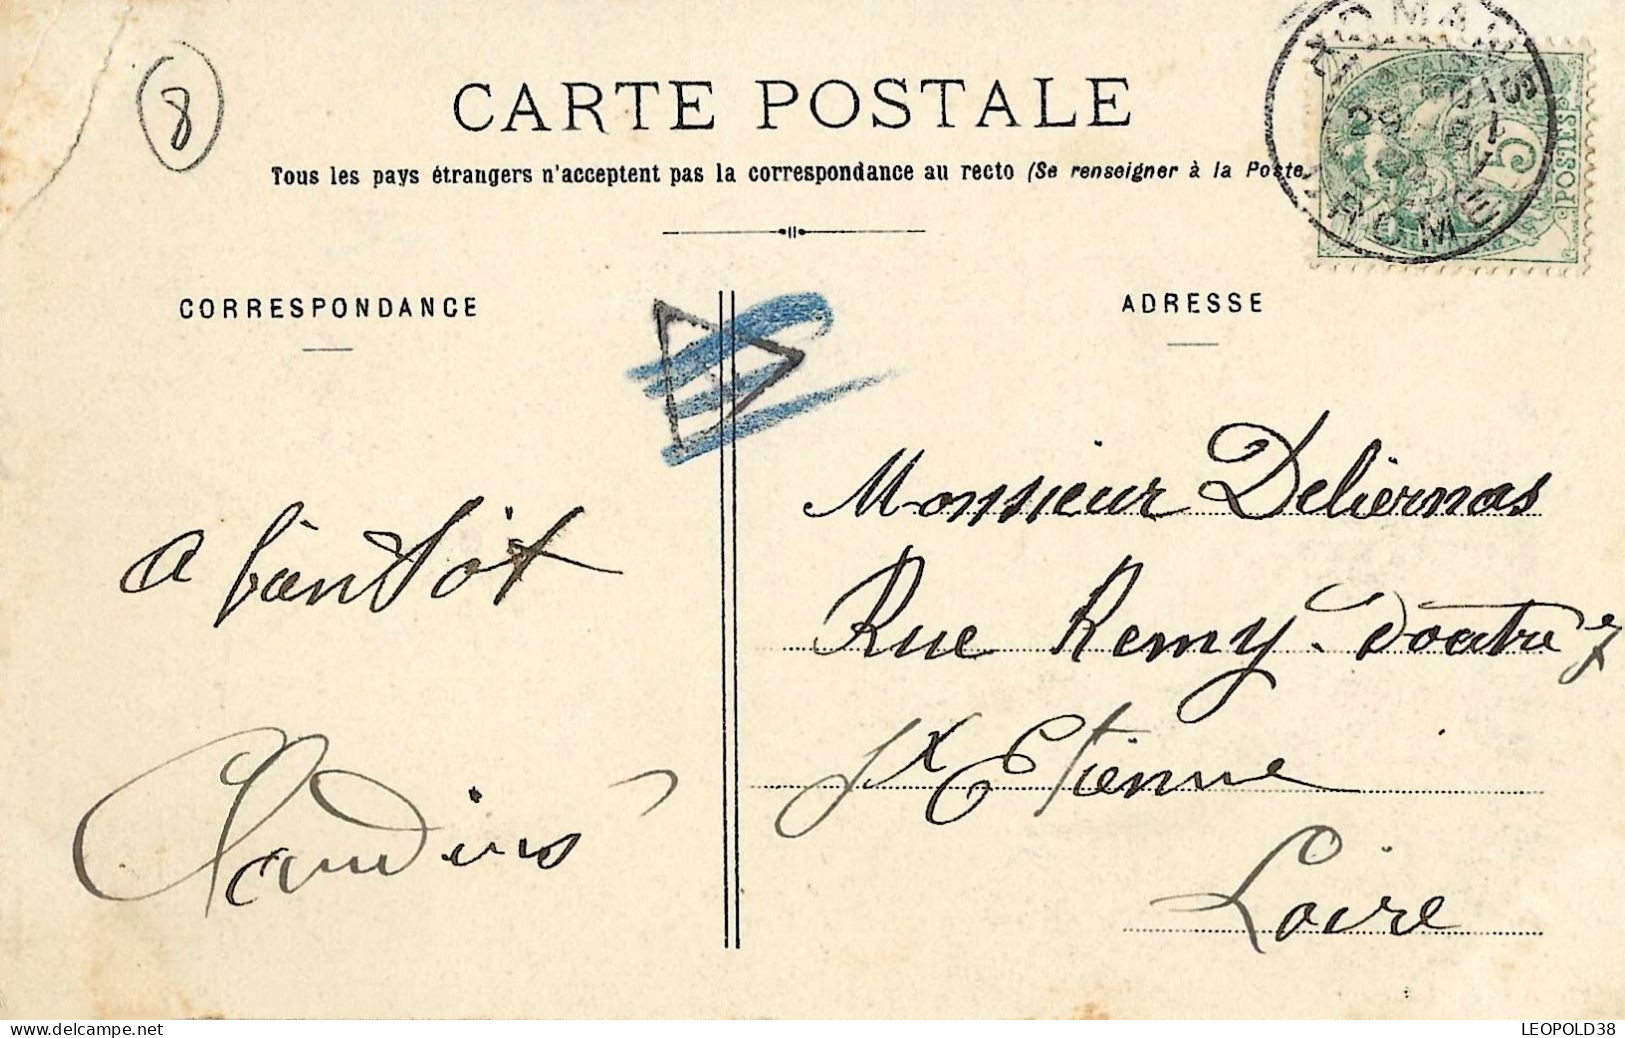 8
CARTE POSTALE
Tous les pays étrangers n'acceptent pas la correspondance au recto (Se renseigner à la Poste
5
POSTES
CORRESPONDANCE
ADRESSE
a bientôt
Monsieur Deliernas
Rue Remy. doutre 7
St Etienne
Loire
LEOPOLD38
www.delcampe.net